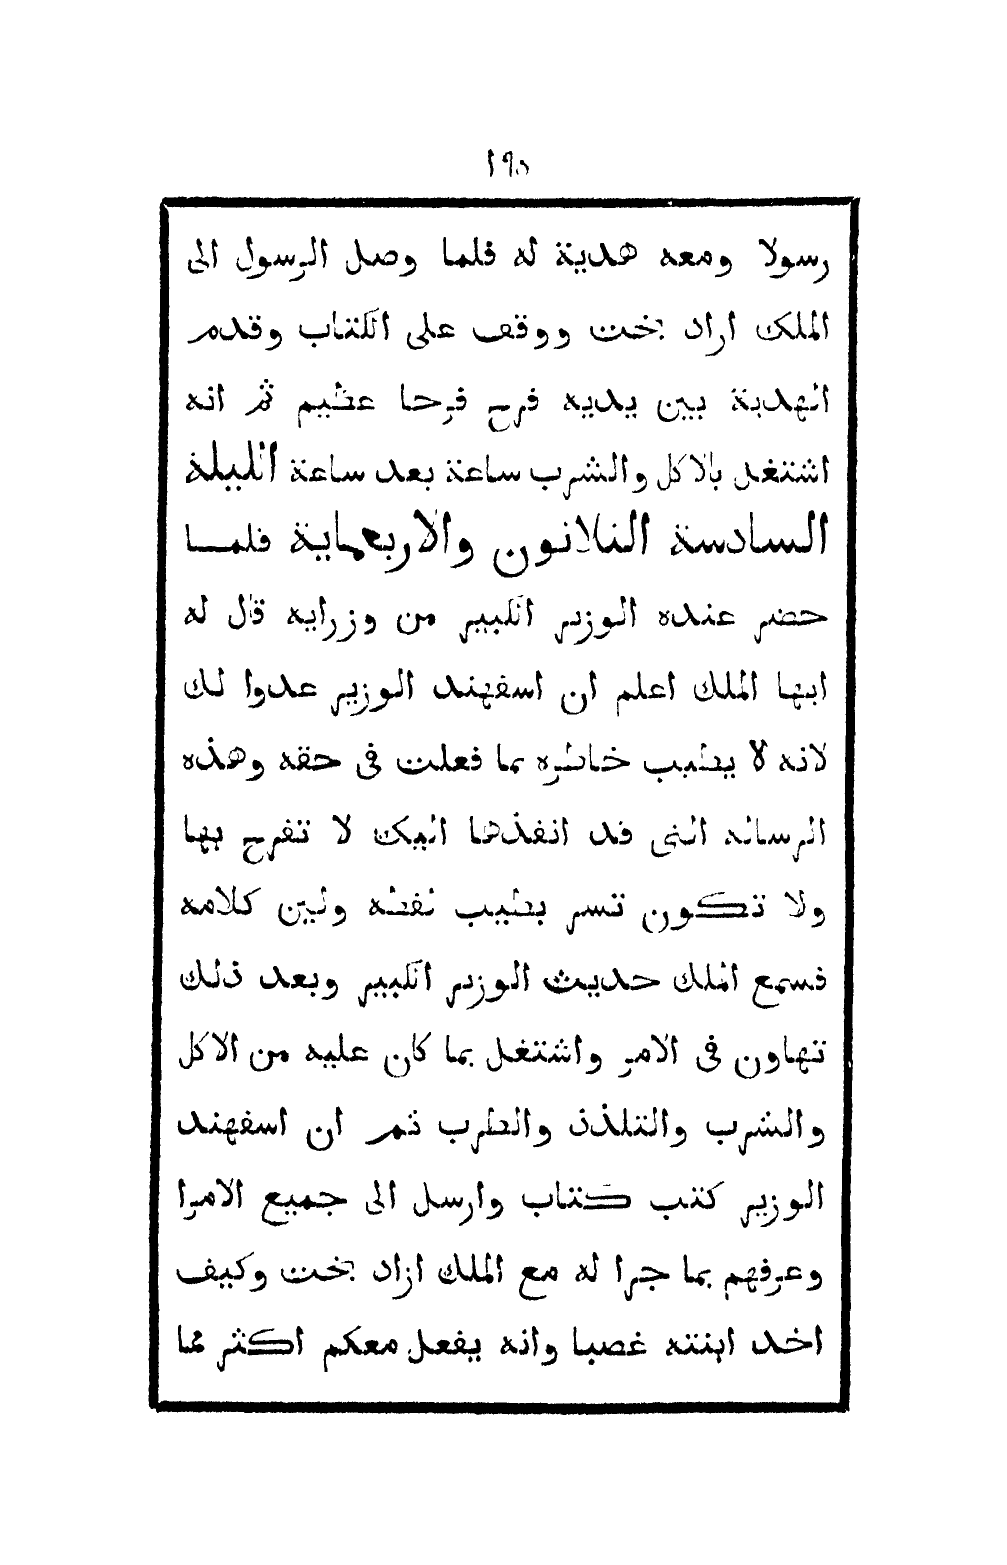 ١٩٥
رسولا ومعه هدية له فلما وصل الرسول الى
الملك اراد بخت ووقف على الكتاب وقدم
الهدية بين يديه فرح فرحا عظيم ثم انه
اشتغل بالاكل والشرب ساعة بعد ساعة الليلة
السادسة الثلاثون والاربعماية فلمــا
حضر عنده الوزير الكبير من وزرايه قال له
ايها الملك اعلم ان اسفهند الوزير عدوا لك
لانه لا يطيب خاطره بما فعلت فى حقه وهذه
الرساله التى قد انفذها اليك لا تفرح بها
ولا تكون تسر بطيب لفظه ولين كلامه
فسمع الملك حديث الوزير الكبير وبعد ذلك
تهاون فى الامر واشتغل بما كان عليه من الاكل
والشرب والتلذذ والطرب ثم ان اسفهند
الوزير كتب كتاب وارسل الى جميع الامرا
وعرفهم بما جرا له مع الملك ازاد بخت وكيف
اخد ابنته غصبا وانه يفعل معكم اكثر مما